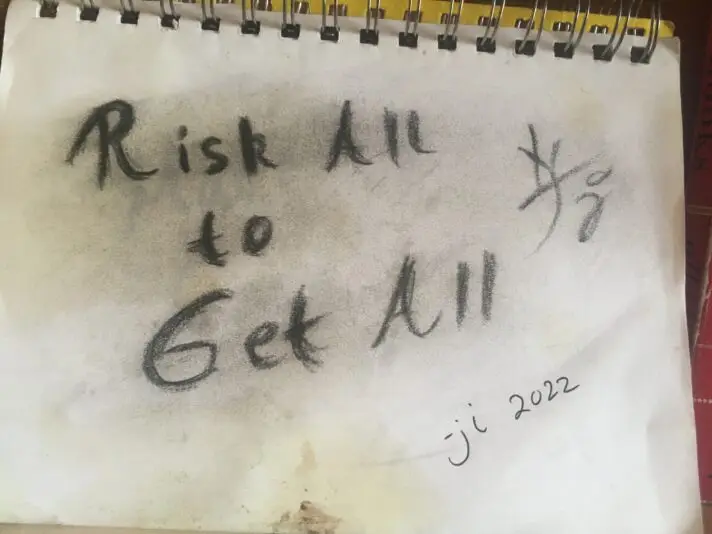 Risk All
to
Get All
-ji 2022